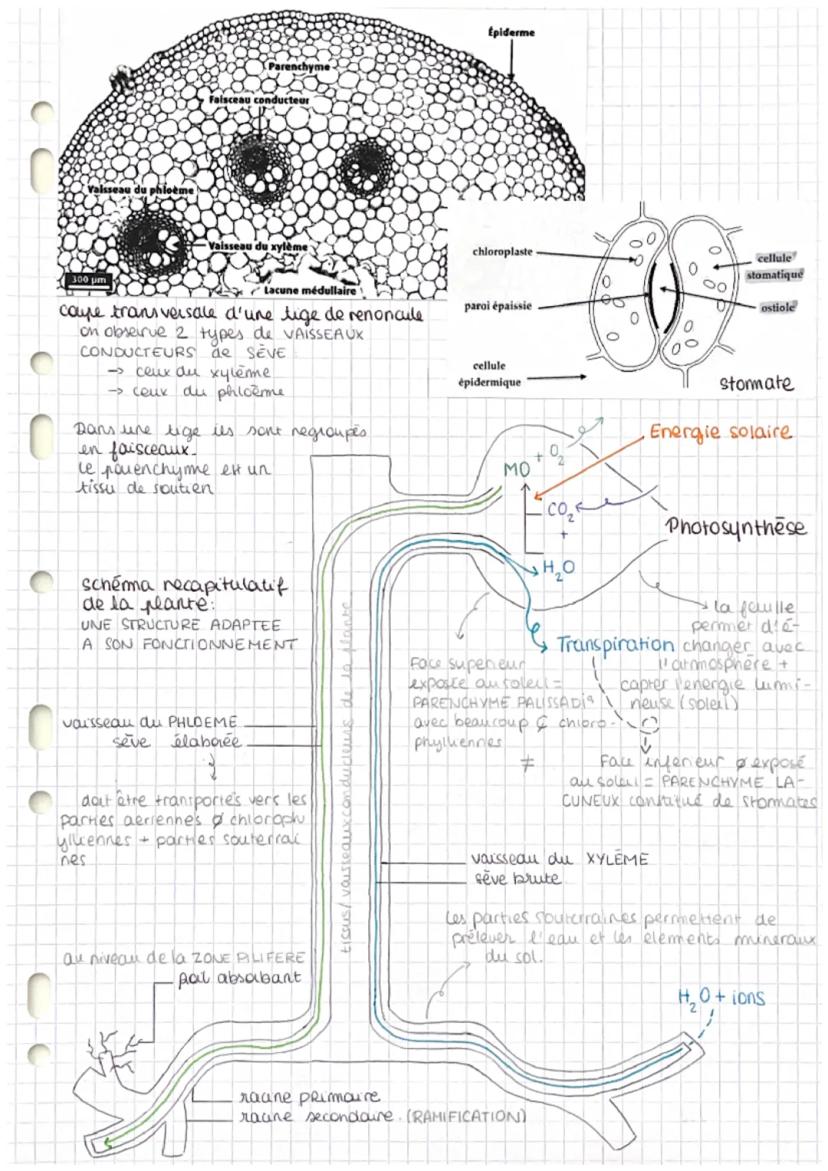 Épiderme
Parenchyme
Faisceau conducteur
Vaisseau du phloème
Vaisseau du xylème
300 µm
Lacune médullaire
chloroplaste
cellule
stomatique
paroi épaissie
ostiole
cellule
épidermique
stomate
coupe transversale d'une tige de renoncule
on observe 2 types de VAISSEAUX
CONDUCTEURS de SÈVE
→ ceux du xylème
→ ceux du phloème
Dans une tige ils sont regroupés
en faisceaux.
Le parenchyme est un
tissu de soutien
Energie solaire
MO + O₂
CO₂
+
H₂O
Photosynthèse
schéma recapitulatif
de la plante:
UNE STRUCTURE ADAPTEE
A SON FONCTIONNEMENT
la feuille
permet d'é-
changer avec
l'atmosphère +
capter l'energie lumi-
neuse (soleil)
Transpiration
Face superieur
exposée au soleil =
PARENCHYME PALISSADI
avec beaucoup chloro-
phylliennes
≠
Face inferieur ∅ exposé
au soleil = PARENCHYME LA-
CUNEUX constitué de stomates
tissus/vaisseaux conducteurs de la plante
vaisseau du PHLOEME
sève élaborée
doit être transportés vers les
parties aeriennes ∅ chloroph
ylliennes + parties souterrai
nes
vaisseau du XYLÈME
sève brute
Les parties souterraines permettent de
prélever l'eau et les elements mineraux
du sol.
au niveau de la ZONE PILIFERE
poil absorbant
H₂O + ions
racine primaire
racine secondaire (RAMIFICATION)